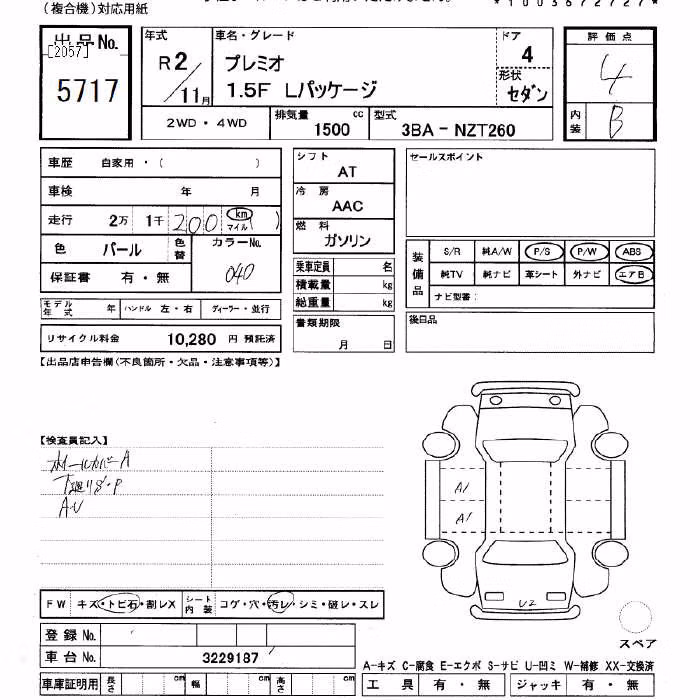 (複合機)対応用紙
*1003672727*
出品No.
[2057]
5717
年式
R2/11月
車名・グレード
プレミオ
1.5F Lパッケージ
ドア
4
形状
セダン
評価点
4
内装
B
2WD・4WD
排気量
1500 cc
型式
3BA-NZT260
車歴 自家用・( )
車検 年 月
走行 2万 1千 200 km マイル ( )
色 パール 色替
カラーNo.
040
保証書 有・無
モデル年式 年 ハンドル 左・右 ディーラー・並行
リサイクル料金 10,280 円 預託済
シフト
AT
冷房
AAC
燃料
ガソリン
乗車定員 名
積載量 kg
総重量 kg
書類期限
月 日
セールスポイント
装備品
S/R 純A/W P/S P/W ABS
純TV 純ナビ 革シート 外ナビ エアB
ナビ型番:
後日品
【出品店申告欄(不良箇所・欠品・注意事項等)】
【検査員記入】
ホイールカバーA
下廻りサ・P
AU
A1
A1
U2
FW キズ・トビ石・割レX シート内装 コゲ・穴・汚レ・シミ・破レ・スレ
登録No.
車台No. 3229187
スペア
A-キズ C-腐食 E-エクボ S-サビ U-凹ミ W-補修 XX-交換済
車庫証明用 長さ cm 幅 cm 高さ cm
工具 有・無 ジャッキ 有・無